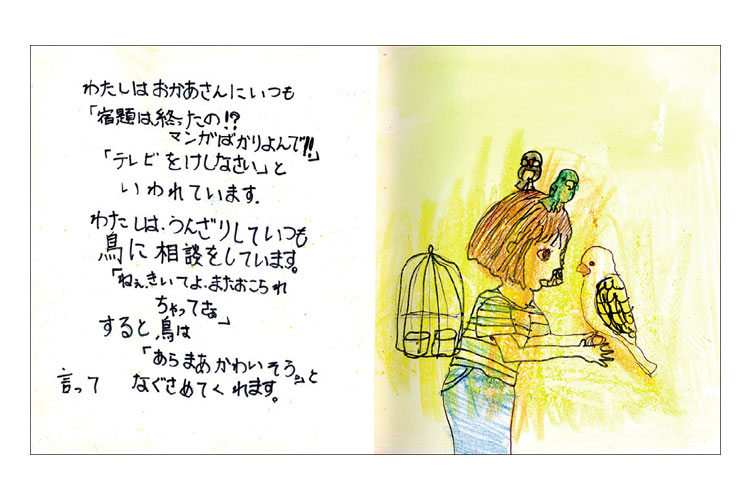 わたしはおかあさんにいつも
「宿題は終ったの!?
マンガばかりよんで!!」
「テレビをけしなさい」と
いわれています.
わたしは、うんざりしていつも
鳥に相談をしています。
「ねぇ、きいてよ、またおこられ
ちゃってさぁ」
すると鳥は
「あらまあかわいそう。」と
言って なぐさめてくれます。